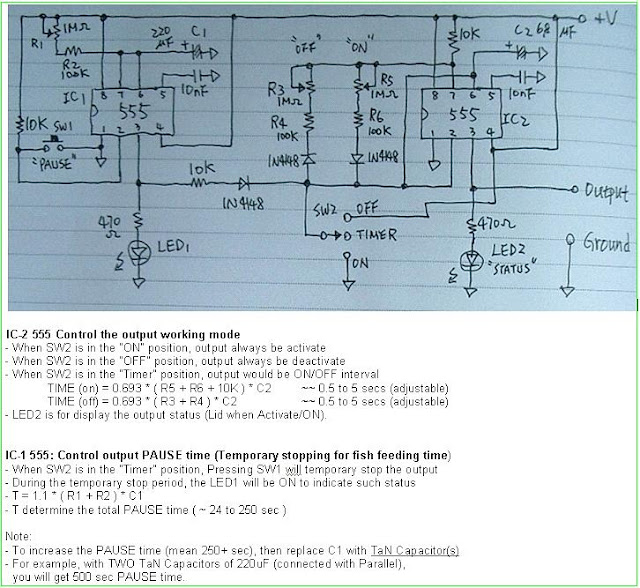 R1 1MΩ
R2 100K
220 μF C1
10nF
IC1
8 7 6 5
555
1 2 3 4
10K
SW1
"PAUSE"
10K
1N4148
470 Ω
LED1
"OFF" "ON"
R3 1MΩ
R5 1MΩ
R4 100K
R6 100K
1N4148
1N4148
SW2
OFF
TIMER
ON
10K
C2 6.8 μF
+V
10nF
8 7 6 5
555
IC2
1 2 3 4
Output
470Ω
LED2
"STATUS"
Ground
IC-2 555 Control the output working mode
- When SW2 is in the "ON" position, output always be activate
- When SW2 is in the "OFF" position, output always be deactivate
- When SW2 is in the "Timer" position, output would be ON/OFF interval
TIME (on) = 0.693 * ( R5 + R6 + 10K ) * C2 ~~ 0.5 to 5 secs (adjustable)
TIME (off) = 0.693 * ( R3 + R4 ) * C2 ~~ 0.5 to 5 secs (adjustable)
- LED2 is for display the output status (Lid when Activate/ON).
IC-1 555: Control output PAUSE time (Temporary stopping for fish feeding time)
- When SW2 is in the "Timer" position, Pressing SW1 will temporary stop the output
- During the temporary stop period, the LED1 will be ON to indicate such status
- T = 1.1 * ( R1 + R2 ) * C1
- T determine the total PAUSE time ( ~ 24 to 250 sec )
Note:
- To increase the PAUSE time (mean 250+ sec), then replace C1 with TaN Capacitor(s)
- For example, with TWO TaN Capacitors of 220uF (connected with Parallel),
you will get 500 sec PAUSE time.